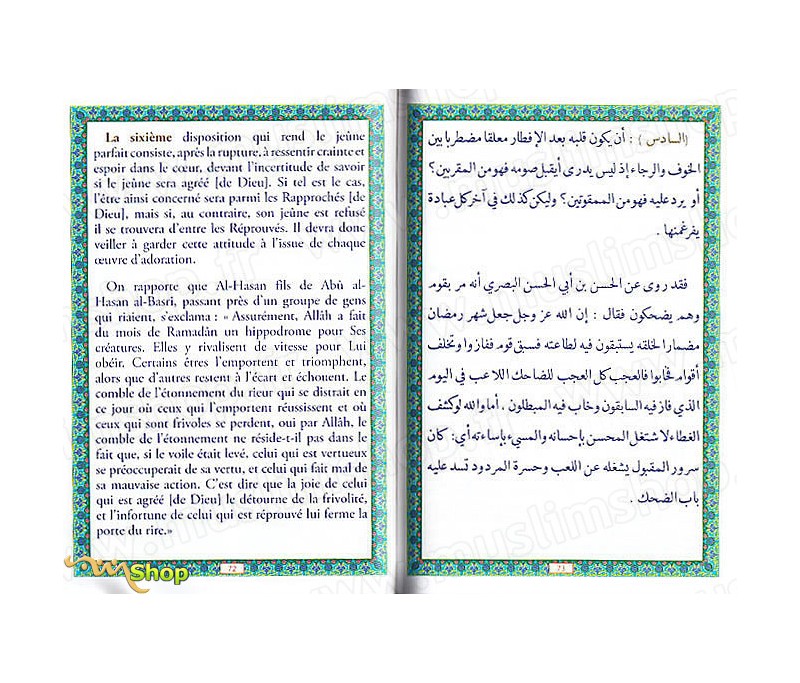 La sixième disposition qui rend le jeûne
parfait consiste, après la rupture, à ressentir crainte et
espoir dans le cœur, devant l'incertitude de savoir
si le jeûne sera agréé [de Dieu]. Si tel est le cas,
l'être ainsi concerné sera parmi les Rapprochés [de
Dieu], mais si, au contraire, son jeûne est refusé
il se trouvera d'entre les Réprouvés. Il devra donc
veiller à garder cette attitude à l'issue de chaque
œuvre d'adoration.
On rapporte que Al-Hasan fils de Abû al-
Hasan al-Basri, passant près d'un groupe de gens
qui riaient, s'exclama : « Assurément, Allâh a fait
du mois de Ramadân un hippodrome pour Ses
créatures. Elles y rivalisent de vitesse pour Lui
obéir. Certains êtres l'emportent et triomphent,
alors que d'autres restent à l'écart et échouent. Le
comble de l'étonnement du rieur qui se distrait en
ce jour où ceux qui l'emportent réussissent et où
ceux qui sont frivoles se perdent, oui par Allâh, le
comble de l'étonnement ne réside-t-il pas dans le
fait que, si le voile était levé, celui qui est vertueux
se préoccuperait de sa vertu, et celui qui fait mal de
sa mauvaise action. C'est dire que la joie de celui
qui est agréé [de Dieu] le détourne de la frivolité,
et l'infortune de celui qui est réprouvé lui ferme la
porte du rire.»
72
mShop
(السادس) : أن يكون قلبه بعد الإفطار معلقا مضطربا بين
الخوف والرجاء إذ ليس يدرى أيقبل صومه فهو من المقربين؟
أو يرد عليه فهو من الممقوتين؟ وليكن كذلك في آخر كل عبادة
يفرغ منها .
فقد روى عن الحسن بن أبي الحسن البصري أنه مر بقوم
وهم يضحكون فقال : إن الله عز وجل جعل شهر رمضان
مضمارا لخلقه يستبقون فيه لطاعته فسبق قوم ففازوا وتخلف
أقوام فخابوا فالعجب كل العجب للضاحك اللاعب في اليوم
الذي فاز فيه السابقون وخاب فيه المبطلون . أما والله لو كشف
الغطاء لاشتغل المحسن بإحسانه والمسيء بإساءته أي: كان
سرور المقبول يشغله عن اللعب وحسرة المردود تسد عليه
باب الضحك .
73